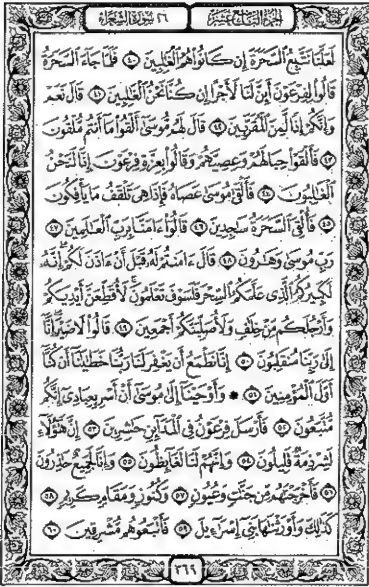 الجزء التاسع عشر ٢٦ سورة الشعراء
لَعَلَّنَا نَتَّبِعُ ٱلسَّحَرَةَ إِن كَانُوا۟ هُمُ ٱلْغَٰلِبِينَ ٤٠ فَلَمَّا جَآءَ ٱلسَّحَرَةُ
قَالُوا۟ لِفِرْعَوْنَ أَئِنَّ لَنَا لَأَجْرًا إِن كُنَّا نَحْنُ ٱلْغَٰلِبِينَ ٤١ قَالَ نَعَمْ
وَإِنَّكُمْ إِذًا لَّمِنَ ٱلْمُقَرَّبِينَ ٤٢ قَالَ لَهُم مُّوسَىٰٓ أَلْقُوا۟ مَآ أَنتُم مُّلْقُونَ
٤٣ فَأَلْقَوْا۟ حِبَالَهُمْ وَعِصِيَّهُمْ وَقَالُوا۟ بِعِزَّةِ فِرْعَوْنَ إِنَّا لَنَحْنُ
ٱلْغَٰلِبُونَ ٤٤ فَأَلْقَىٰ مُوسَىٰ عَصَاهُ فَإِذَا هِىَ تَلْقَفُ مَا يَأْفِكُونَ
٤٥ فَأُلْقِىَ ٱلسَّحَرَةُ سَٰجِدِينَ ٤٦ قَالُوٓا۟ ءَامَنَّا بِرَبِّ ٱلْعَٰلَمِينَ ٤٧
رَبِّ مُوسَىٰ وَهَٰرُونَ ٤٨ قَالَ ءَامَنتُمْ لَهُۥ قَبْلَ أَنْ ءَاذَنَ لَكُمْ إِنَّهُۥ
لَكَبِيرُكُمُ ٱلَّذِى عَلَّمَكُمُ ٱلسِّحْرَ فَلَسَوْفَ تَعْلَمُونَ لَأُقَطِّعَنَّ أَيْدِيَكُمْ
وَأَرْجُلَكُم مِّنْ خِلَٰفٍ وَلَأُصَلِّبَنَّكُمْ أَجْمَعِينَ ٤٩ قَالُوا۟ لَا ضَيْرَ إِنَّآ
إِلَىٰ رَبِّنَا مُنقَلِبُونَ ٥٠ إِنَّا نَطْمَعُ أَن يَغْفِرَ لَنَا رَبُّنَا خَطَٰيَٰنَآ أَن كُنَّآ
أَوَّلَ ٱلْمُؤْمِنِينَ ٥١ وَأَوْحَيْنَآ إِلَىٰ مُوسَىٰٓ أَنْ أَسْرِ بِعِبَادِىٓ إِنَّكُم
مُّتَّبَعُونَ ٥٢ فَأَرْسَلَ فِرْعَوْنُ فِى ٱلْمَدَآئِنِ حَٰشِرِينَ ٥٣ إِنَّ هَٰٓؤُلَآءِ
لَشِرْذِمَةٌ قَلِيلُونَ ٥٤ وَإِنَّهُمْ لَنَا لَغَآئِظُونَ ٥٥ وَإِنَّا لَجَمِيعٌ حَٰذِرُونَ
٥٦ فَأَخْرَجْنَٰهُم مِّن جَنَّٰتٍ وَعُيُونٍ ٥٧ وَكُنُوزٍ وَمَقَامٍ كَرِيمٍ ٥٨
كَذَٰلِكَ وَأَوْرَثْنَٰهَا بَنِىٓ إِسْرَٰٓءِيلَ ٥٩ فَأَتْبَعُوهُم مُّشْرِقِينَ ٦٠
٣٦٩